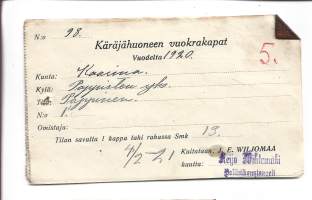 N:o 98.
Käräjähuoneen vuokrakapat
Vuodelta 1920.
5.
Kunta: Kaarina.
Kylä: Papisten yks.
Talo: Pappinen.
N:o 1.
Omistaja:
Tilan savulta 1 kappa tahi rahassa Smk 13.
4/2-21 Kuitataan, J. E. WILJOMAA
kautta: